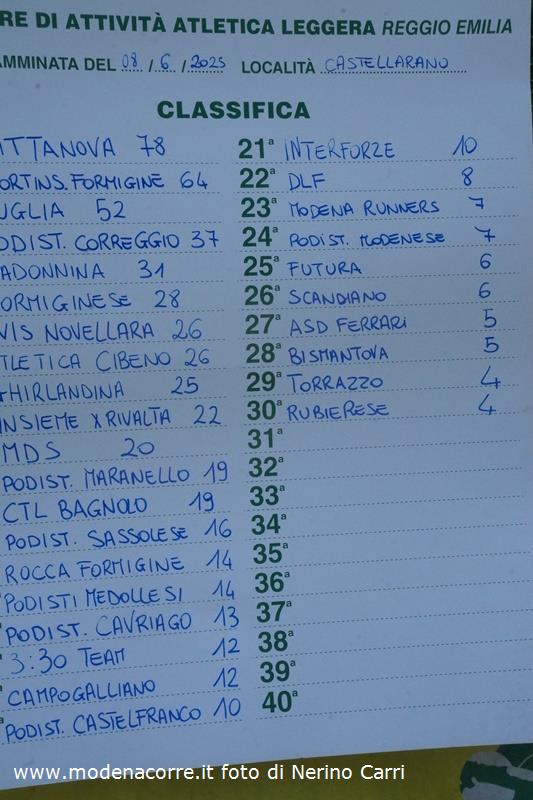 RE DI ATTIVITÀ ATLETICA LEGGERA REGGIO EMILIA
AMMINATA DEL 08 / 6 / 2025 LOCALITÀ CASTELLARANO
CLASSIFICA
ITTANOVA 78
ORTINS. FORMIGINE 64
UGLIA 52
ODIST. CORREGGIO 37
ADONNINA 31
ORMIGINESE 28
VIS NOVELLARA 26
TLETICA CIBENO 26
GHIRLANDINA 25
INSIEME X RIVALTA 22
MDS 20
PODIST. MARANELLO 19
CTL BAGNOLO 19
PODIST. SASSOLESE 16
ROCCA FORMIGINE 14
PODISTI MEDOLLESI 14
PODIST. CAVRIAGO 13
3:30 TEAM 12
CAMPOGALLIANO 12
PODIST. CASTELFRANCO 10
21ª INTERFORZE 10
22ª DLF 8
23ª MODENA RUNNERS 7
24ª PODIST. MODENESE 7
25ª FUTURA 6
26ª SCANDIANO 6
27ª ASD FERRARI 5
28ª BISMANTOVA 5
29ª TORRAZZO 4
30ª RUBIERESE 4
31ª
32ª
33ª
34ª
35ª
36ª
37ª
38ª
39ª
40ª
www.modenacorre.it foto di Nerino Carri